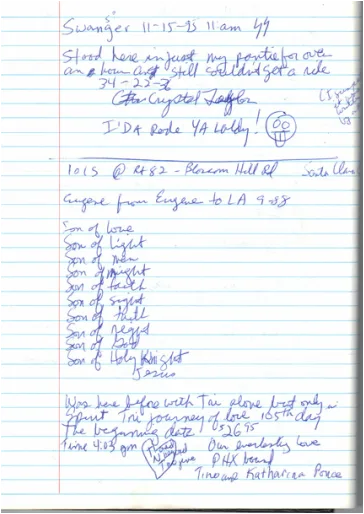 Swanger 11-15-95 11 am
Stood here in just my panties for over
an hour and still couldn't get a ride
34-22-36
Crystal Taylor
I'DA Rode YA Lobby!
101 S @ Rt 82 - Blossom Hill Rd Santa Clara
Eugene from Eugene to LA 9-88
Son of love
Son of light
Son of men
Son of might
Son of faith
Son of sight
Son of
Son of
Son of God
Son of Holy Knight
Jesus
Was here before with Tri alone but only in
Spirit Tri journey of love 105th day
The beginning date 052695
Time 4:03 pm Our everlasting love
PHX bound
Tino and Katharina Ponce